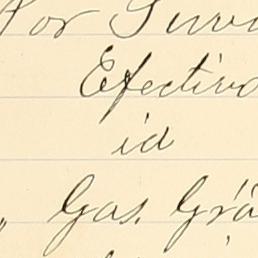 for Surv
Efectivo
id
" Gas. Grá